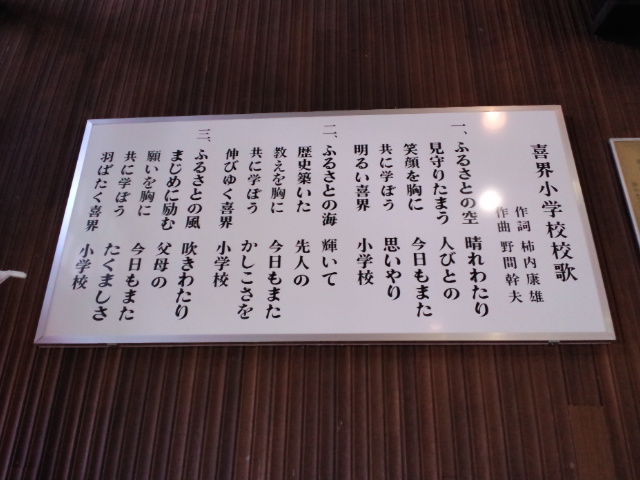 喜界小学校校歌
作詞 柿内康雄
作曲 野間幹夫
一、ふるさとの空 晴れわたり
見守りたまう 人びとの
笑顔を胸に 今日もまた
共に学ぼう 思いやり
明るい喜界 小学校
二、ふるさとの海 輝いて
歴史築いた 先人の
教えを胸に 今日もまた
共に学ぼう かしこさを
伸びゆく喜界 小学校
三、ふるさとの風 吹きわたり
まじめに励む 父母の
願いを胸に 今日もまた
共に学ぼう たくましさ
羽ばたく喜界 小学校